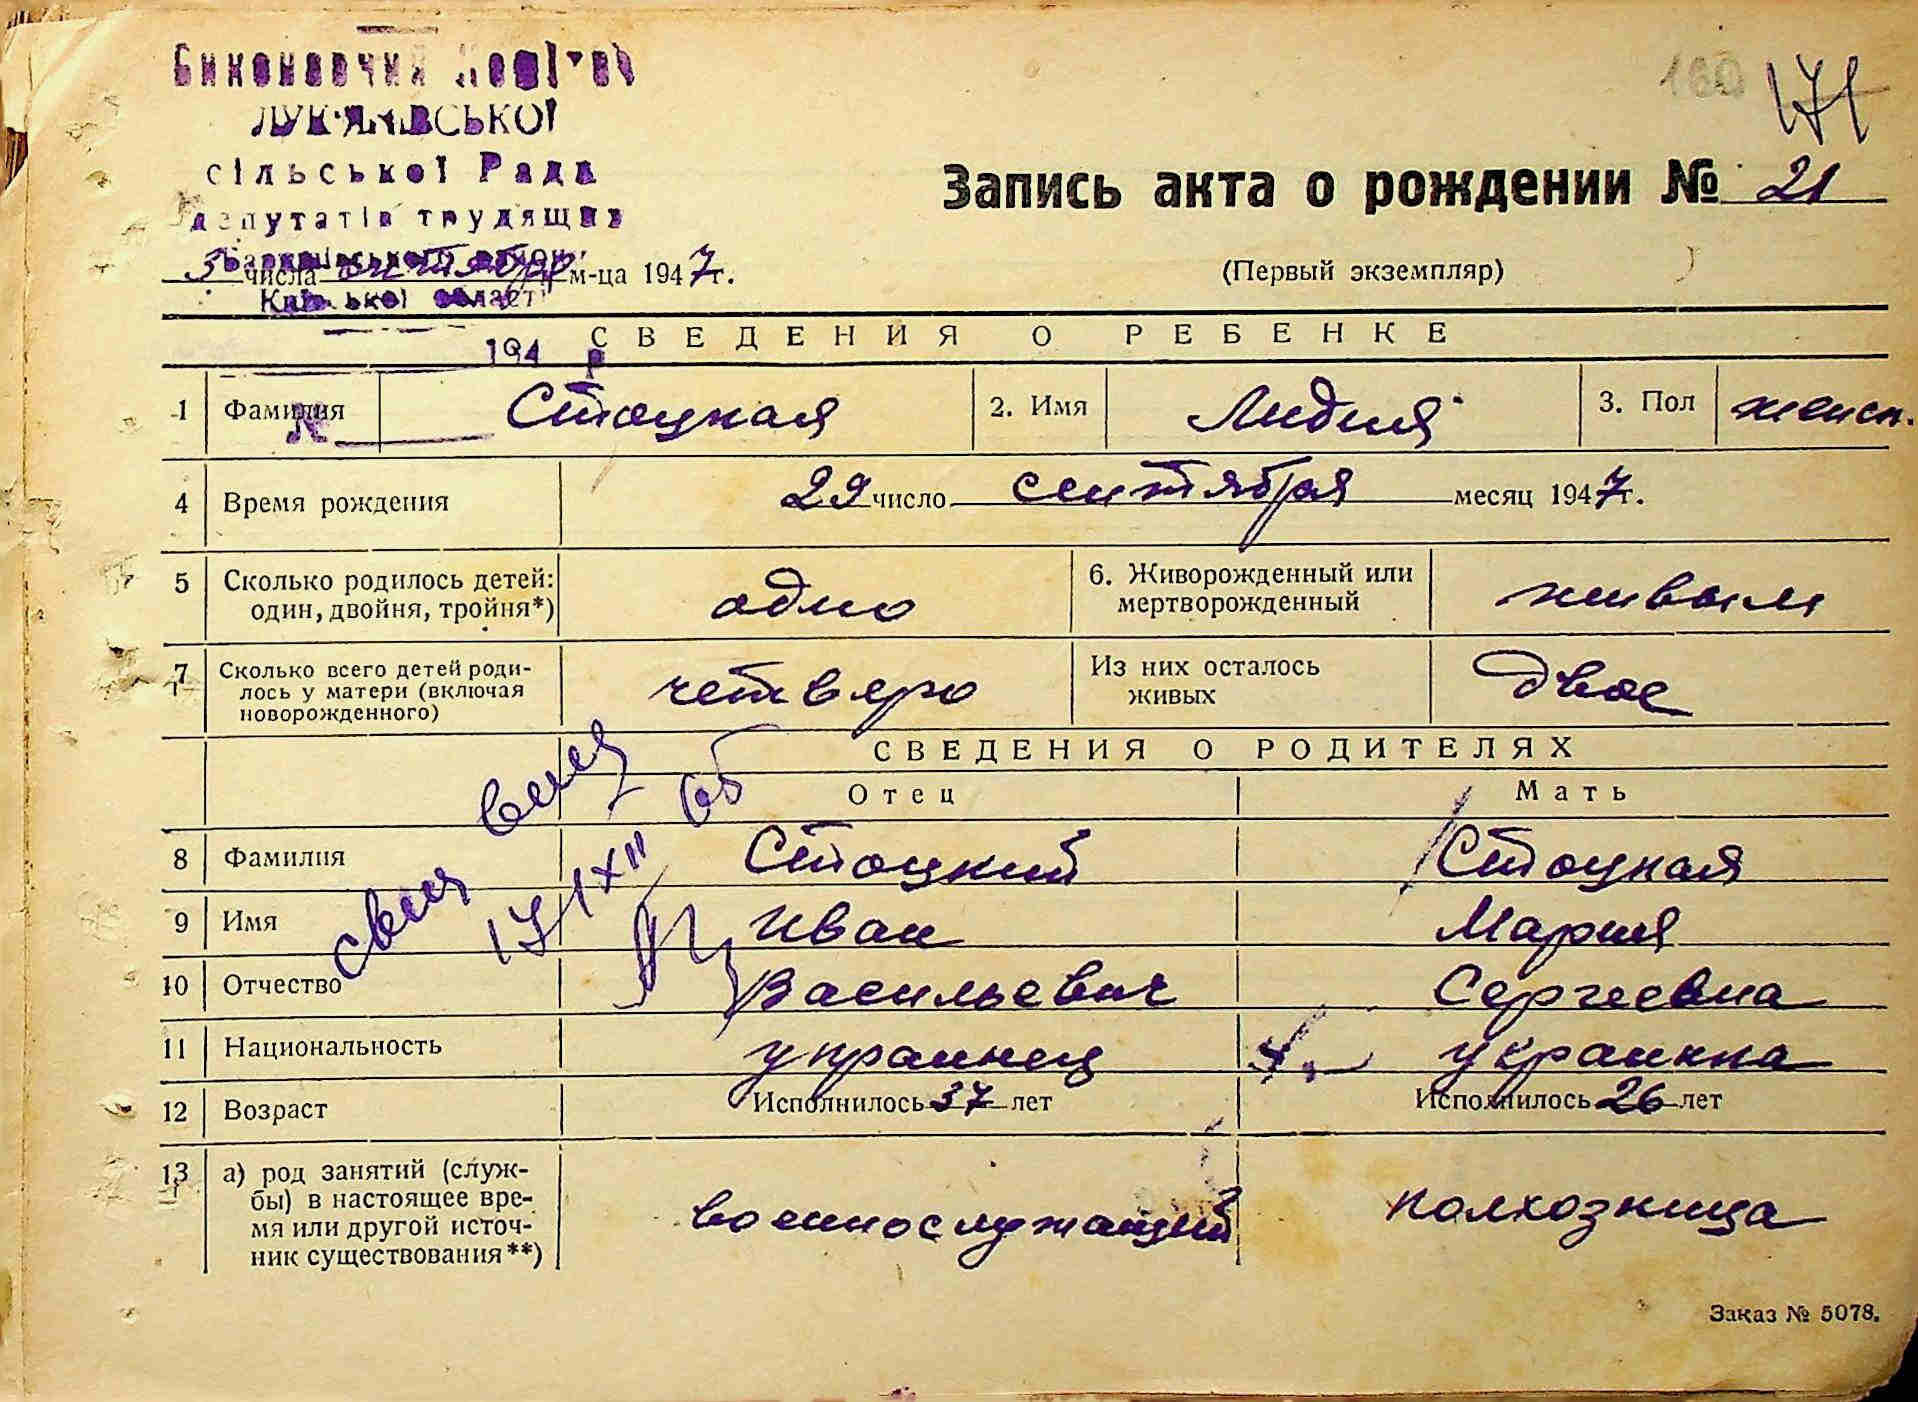 Виконавчий Комітет
ЛУК'ЯНІВСЬКОЇ
сільської Ради
депутатів трудящих
Київської області
194 р
№
160
171
Запись акта о рождении № 21
3 числа октября м-ца 1947 г.
(Первый экземпляр)
СВЕДЕНИЯ О РЕБЕНКЕ
1 Фамилия Стоцкая 2. Имя Лидия 3. Пол женск.
4 Время рождения 29 число сентября месяц 1947 г.
5 Сколько родилось детей: один, двойня, тройня*) одно 6. Живорожденный или мертворожденный живым
7 Сколько всего детей родилось у матери (включая новорожденного) четверо Из них осталось живых двое
СВЕДЕНИЯ О РОДИТЕЛЯХ
Отец Мать
8 Фамилия Стоцкий Стоцкая
9 Имя Иван Мария
10 Отчество Васильевич Сергеевна
11 Национальность украинец украинка
12 Возраст Исполнилось 37 лет Исполнилось 26 лет
13 а) род занятий (службы) в настоящее время или другой источник существования**) военнослужащий колхозница
17/XII 65
Заказ № 5078.